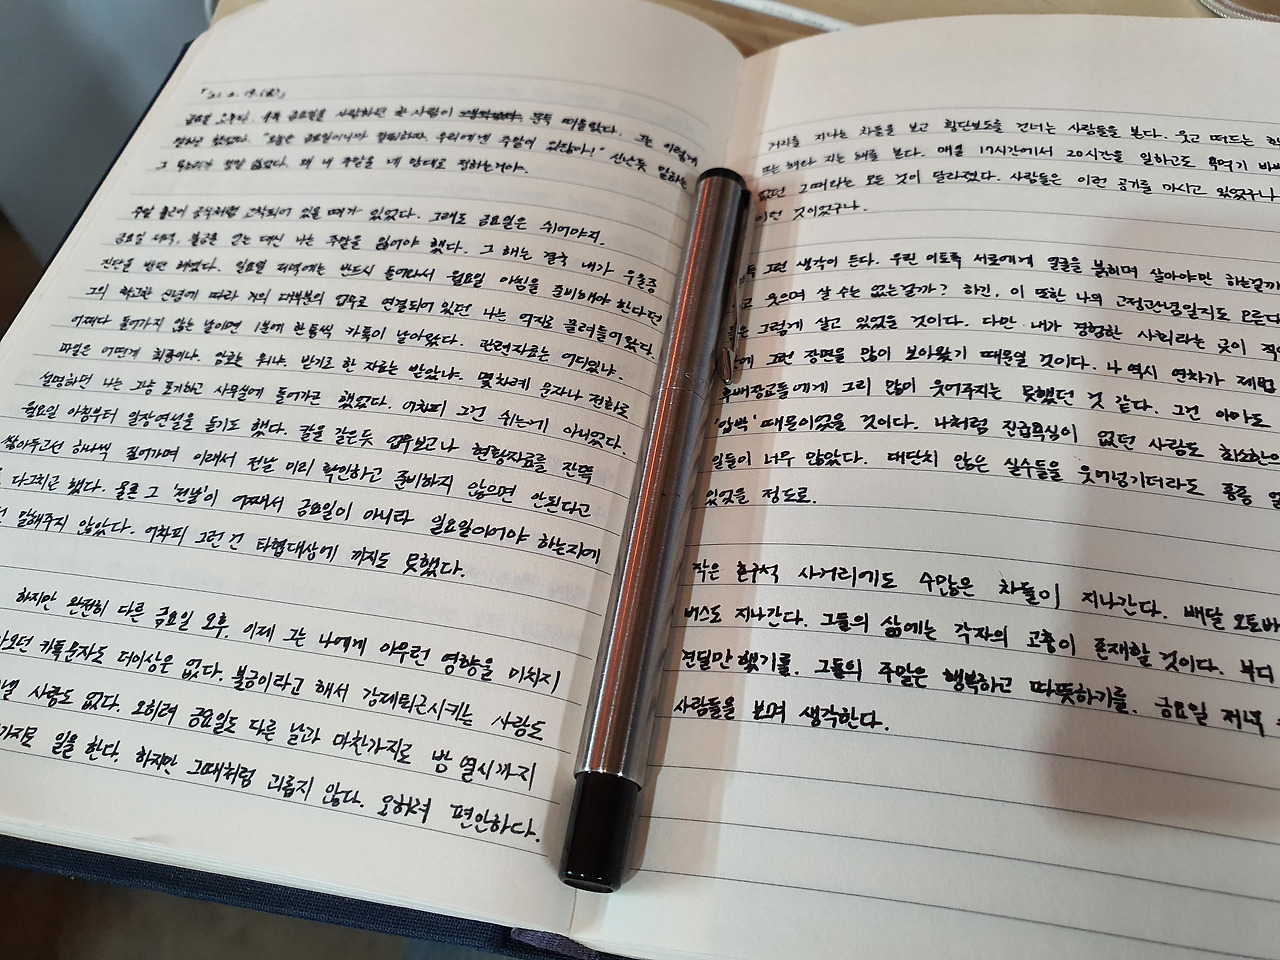 금요일 오후다. 유독 금요일을 사랑하던 한 사람이 문득 떠올랐다. 그는 이렇게
말하곤 했었다. "오늘은 금요일이니까 괜찮아. 우리에겐 주말이 있잖아!" 신난듯 말하는
그 목소리가 정말 싫었다. 왜 내 주말을 네 맘대로 정하는거야.
주말 출근이 공식처럼 고착되어 있을 때가 있었다. 그래도 금요일은 쉬어야지.
금요일 저녁, 불금을 얻는 대신 나는 주말을 잃어야 했다. 그 해는 결국 내가 우울증
진단을 받던 해였다. 일요일 저녁에는 반드시 들어와서 월요일 아침을 준비해야 한다던
그의 확고한 신념에 따라 거의 대부분의 업무로 연결되어 있던 나는 억지로 끌려들어왔다.
어쩌다 들어가지 않는 날이면 1분에 한통씩 카톡이 날아왔다. 관련자료는 어디있냐.
파일은 어떤게 최종이냐. 암호는 뭐냐. 받기로 한 자료는 받았냐. 몇차례 문자나 전화로
설명하던 나는 그냥 포기하고 사무실에 들어가곤 했었다. 어차피 그건 쉬는게 아니었다.
월요일 아침부터 일장연설을 듣기도 했다. 칼을 갈은듯 업무보고나 현황자료를 잔뜩
쌓아두고선 하나씩 짚어가며 이래서 전날 미리 확인하고 준비하지 않으면 안된다고
다그치곤 했다. 물론 그 '전날'이 어째서 금요일이 아니라 일요일이어야 하는지에
말해주지 않았다. 어차피 그런 건 타협대상에 끼지도 못했다.
하지만 완전히 다른 금요일 오후. 이제 그는 나에게 아무런 영향을 미치지
카톡문자도 더이상은 없다. 불금이라고 해서 강제퇴근시키는 사람도
사람도 없다. 오히려 금요일도 다른 날과 마찬가지로 밤 열시까지
일을 한다. 하지만 그때처럼 괴롭지 않다. 오히려 편안하다.
거리를 지나는 차들을 보고 횡단보도를 건너는 사람들을 본다. 웃고 떠드는
뜨는 해와 지는 해를 본다. 매일 17시간에서 20시간을 일하고도 욕먹기 바빴
없던 그때와는 모든 것이 달라졌다. 사람들은 이런 공기를 마시고 있었구나
이런 것이었구나.
그런 생각이 든다. 우린 이토록 서로에게 얼굴을 붉히며 살아야만 하는걸까
웃으며 살 수는 없는걸까? 하긴, 이 또한 나의 고정관념일지도 모른다
그렇게 살고 있었을 것이다. 다만 내가 경험한 사회라는 곳이
그런 장면을 많이 보아왔기 때문일 것이다. 나 역시 연차가 제법
후배장교들에게 그리 많이 웃어주지는 못했던 것 같다. 그건 아마도
'압박' 때문이었을 것이다. 나처럼 진급욕심이 없던 사람도 최소한의
일들이 너무 많았다. 대단치 않은 실수들을 웃어넘기더라도 종종
있었을 정도로.
작은 한구석 사거리에도 수많은 차들이 지나간다. 배달 오토바
버스도 지나간다. 그들의 삶에는 각자의 고충이 존재할 것이다. 부디
견딜만 했기를. 그들의 주말은 행복하고 따뜻하기를. 금요일 저녁
사람들을 보며 생각한다.